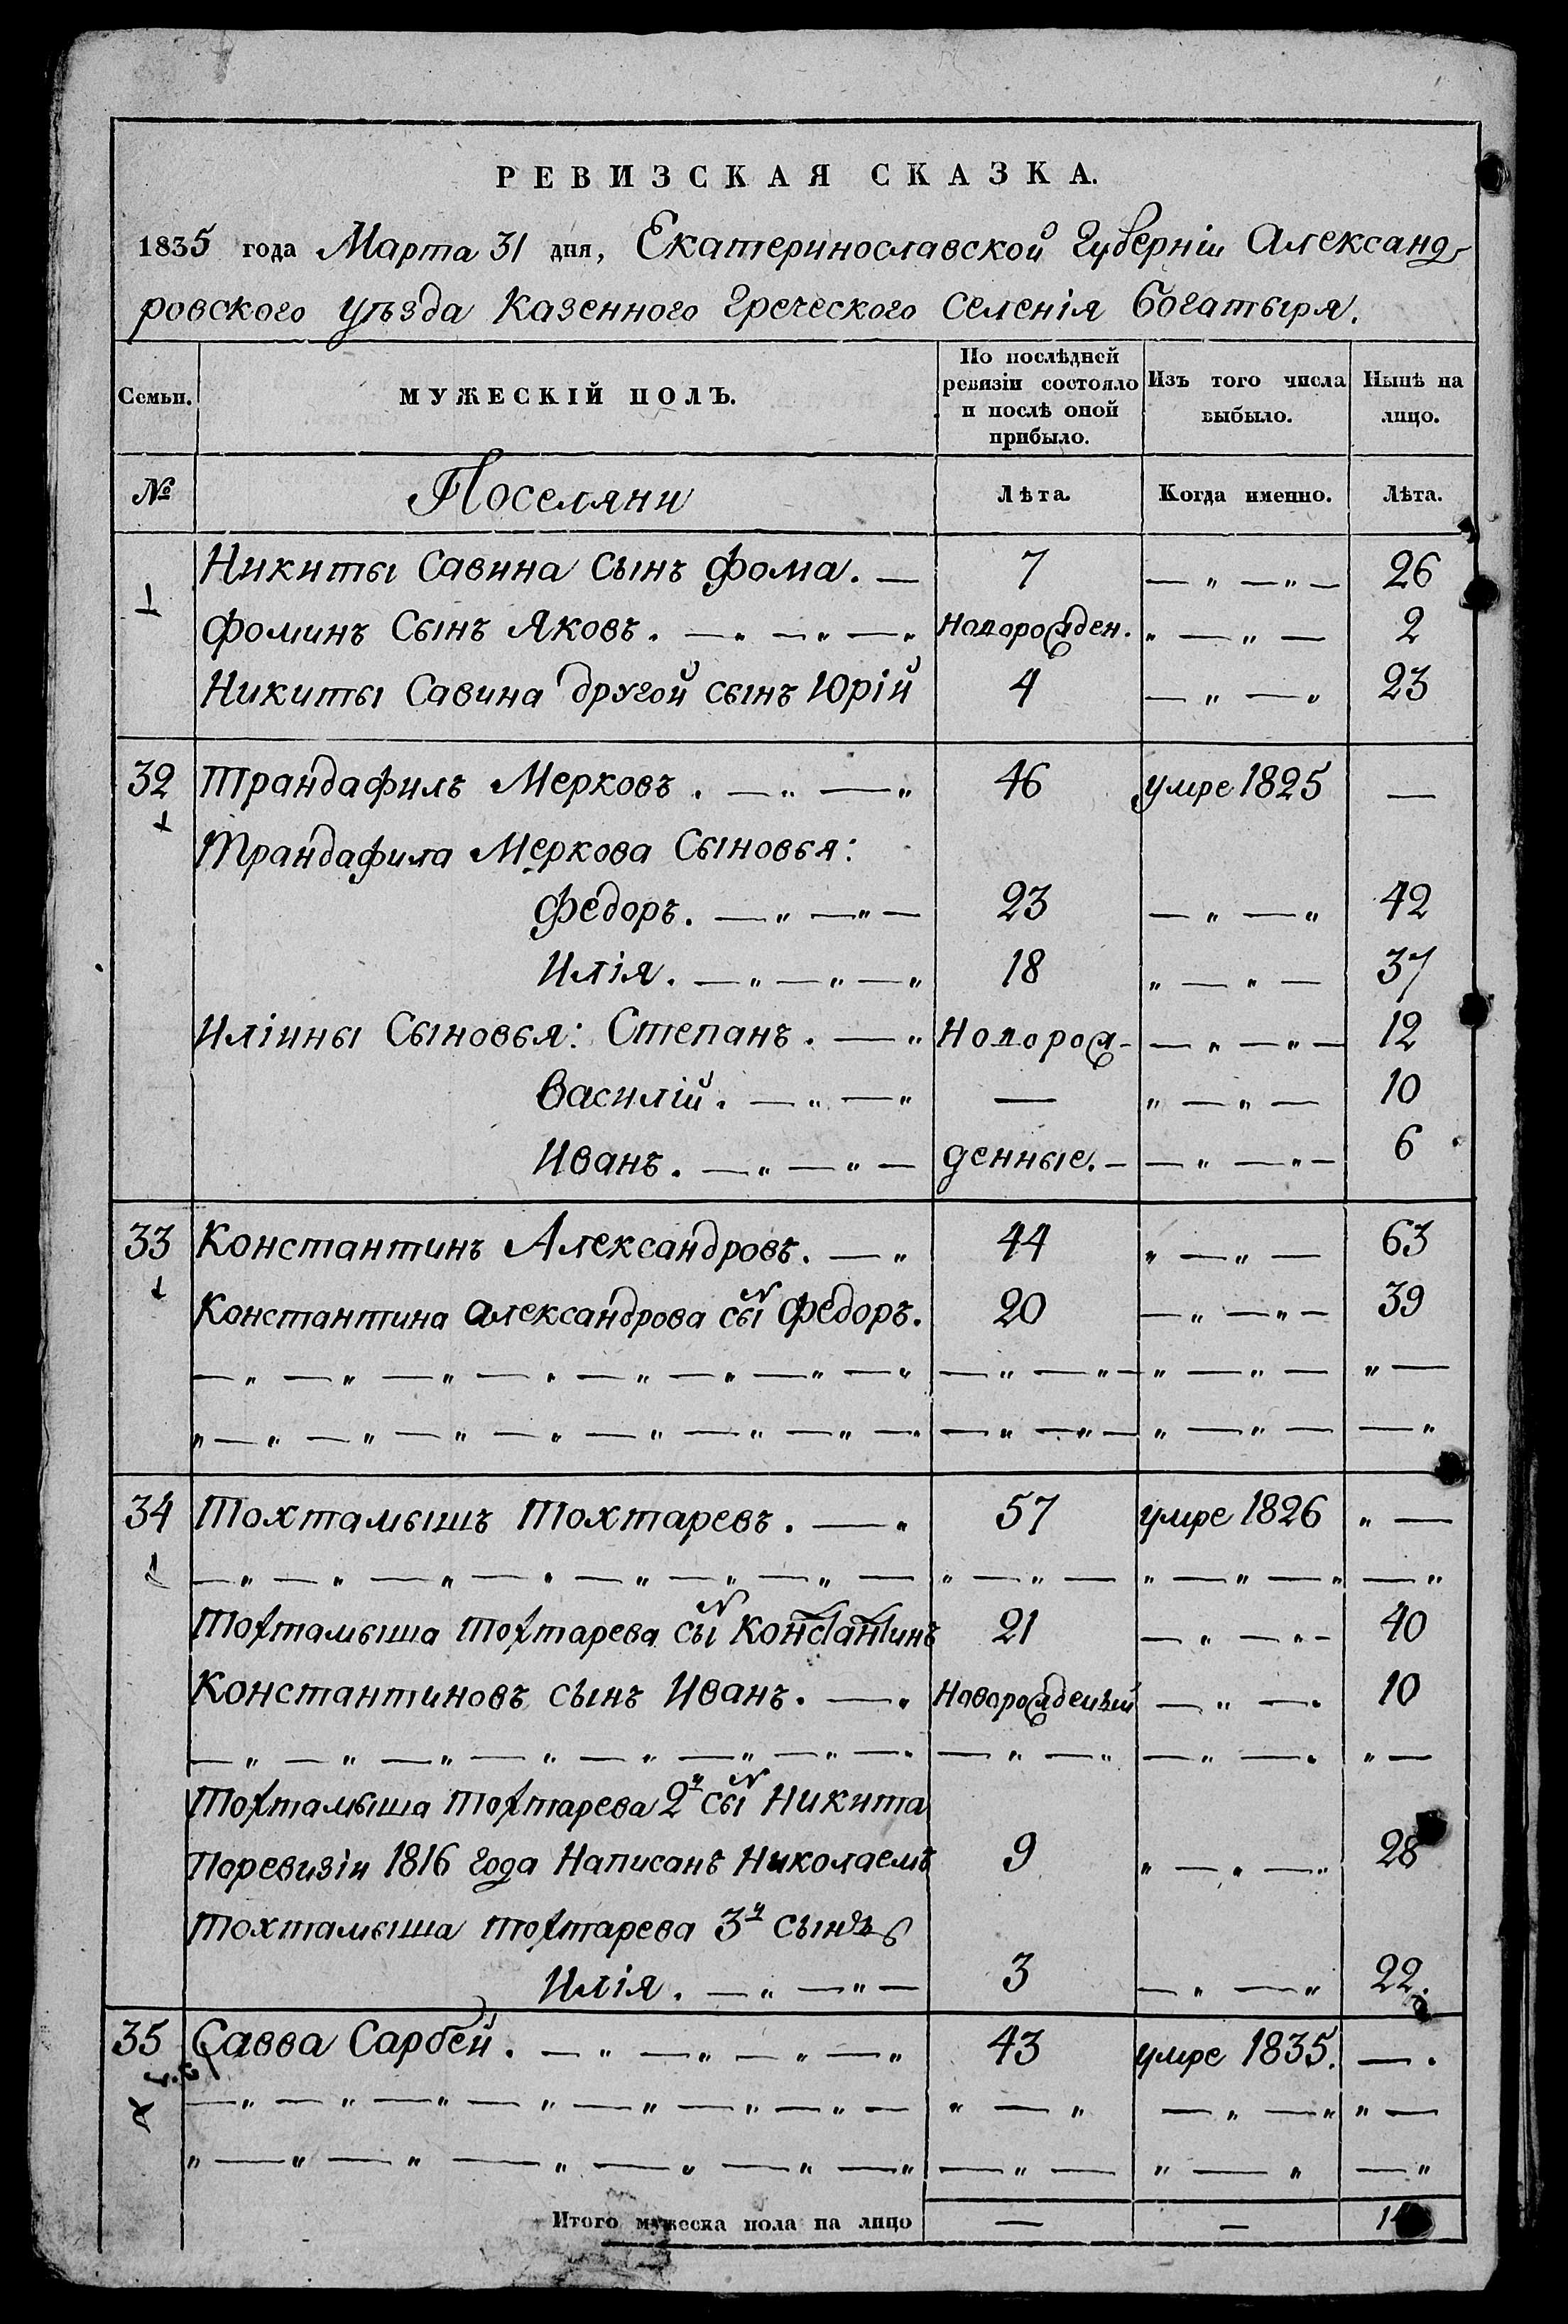 РЕВИЗСКАЯ СКАЗКА.
1835 года Марта 31 дня, Екатеринославской Губерніи Александ-
ровского уѣзда Казенного Греческого Селенія Богатыря.
Семьи. МУЖЕСКІЙ ПОЛЪ. По послѣдней ревизіи состояло и послѣ оной прибыло. Изъ того числа выбыло. Нынѣ на лицо.
№ Поселяни Лѣта. Когда именно. Лѣта.
Никиты Савина Сынъ Фома. — 7 — „ — „ — 26
Фоминъ Сынъ Яковъ. — „ — „ — „ Новорожден. „ — „ — 2
Никиты Савина другой сынъ Юрій 4 — „ — „ 23
32 Трандафилъ Мерковъ. — „ — „ 46 умре 1825 —
Трандафила Меркова Сыновья:
Федоръ. — „ — „ — 23 — „ — „ 42
Илія. — „ — „ — „ 18 „ — „ — 37
Иліины Сыновья: Степанъ. — „ Новорож- — „ — „ — 12
Василій. — „ — „ — „ — „ — 10
Иванъ. — „ — „ — денные. — — „ — „ — 6
33 Константинъ Александровъ. — „ 44 „ — „ — 63
Константина Александрова сын Федоръ. 20 — „ — „ — 39
34 Тохтамышъ Тохтаревъ. — „ 57 умре 1826 „ —
Тохтамыша Тохтарева сын Константинъ 21 — „ — „ — 40
Константиновъ сынъ Иванъ. — „ Новорожденный — „ — „ 10
Тохтамыша Тохтарева 2й сын Никита
Поревизіи 1816 года Написанъ Николаемъ 9 „ — „ — „ 28
Тохтамыша Тохтарева 3й сынъ
Илія. — „ — „ — 3 — „ — „ 22.
35 Савва Сарбей. — „ — „ — „ — „ 43 умре 1835. — .
Итого мужеска пола на лицо — —